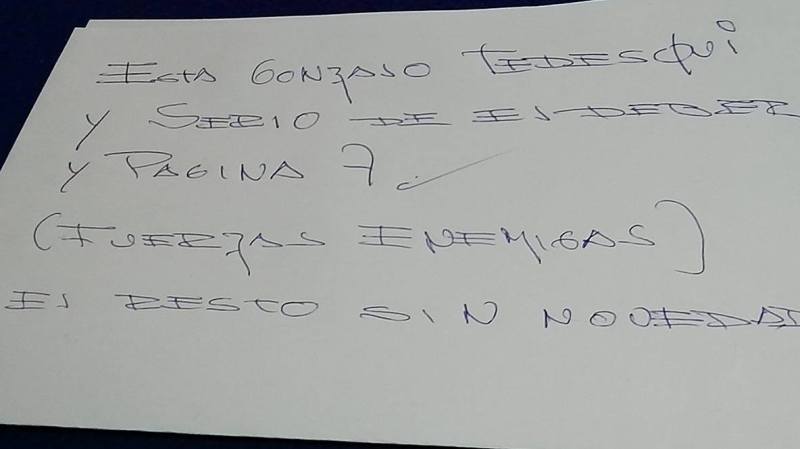 ESTA GONZALO TEDESQUI
Y SERIO DE EL DEBER
Y PAGINA 7.
(FUERZAS ENEMIGAS)
EL RESTO SIN NOVEDAD